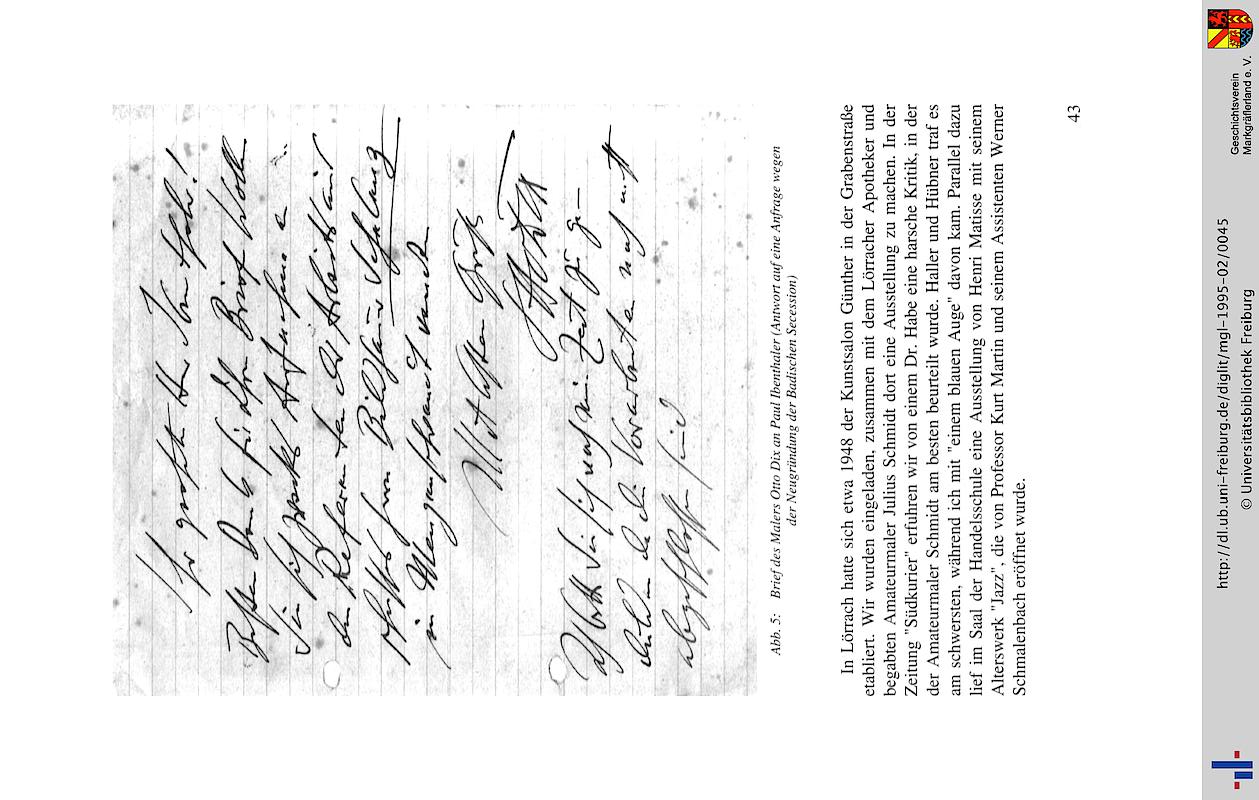 Sehr geehrter Herr Ibenthaler!
Besten Dank für Ihren Brief. Wollen
Sie sich zwecks Aufnahme an
den Referenten der
Bildhauer Schelang
in wenden
Mit besten Grüßen
Dix
Zeit
die Vorarbeiten noch nicht
abgeschlossen sind
Abb. 5: Brief des Malers Otto Dix an Paul Ibenthaler (Antwort auf eine Anfrage wegen
der Neugründung der Badischen Secession)
In Lörrach hatte sich etwa 1948 der Kunstsalon Günther in der Grabenstraße
etabliert. Wir wurden eingeladen, zusammen mit dem Lörracher Apotheker und
begabten Amateurmaler Julius Schmidt dort eine Ausstellung zu machen. In der
Zeitung "Südkurier" erfuhren wir von einem Dr. Habe eine harsche Kritik, in der
der Amateurmaler Schmidt am besten beurteilt wurde. Haller und Hübner traf es
am schwersten, während ich mit "einem blauen Auge" davon kam. Parallel dazu
lief im Saal der Handelsschule eine Ausstellung von Henri Matisse mit seinem
Alterswerk "Jazz", die von Professor Kurt Martin und seinem Assistenten Werner
Schmalenbach eröffnet wurde.
43
http://dl.ub.uni-freiburg.de/diglit/mgl-1995-02/0045
© Universitätsbibliothek Freiburg
Geschichtsverein
Markgräflerland e. V.